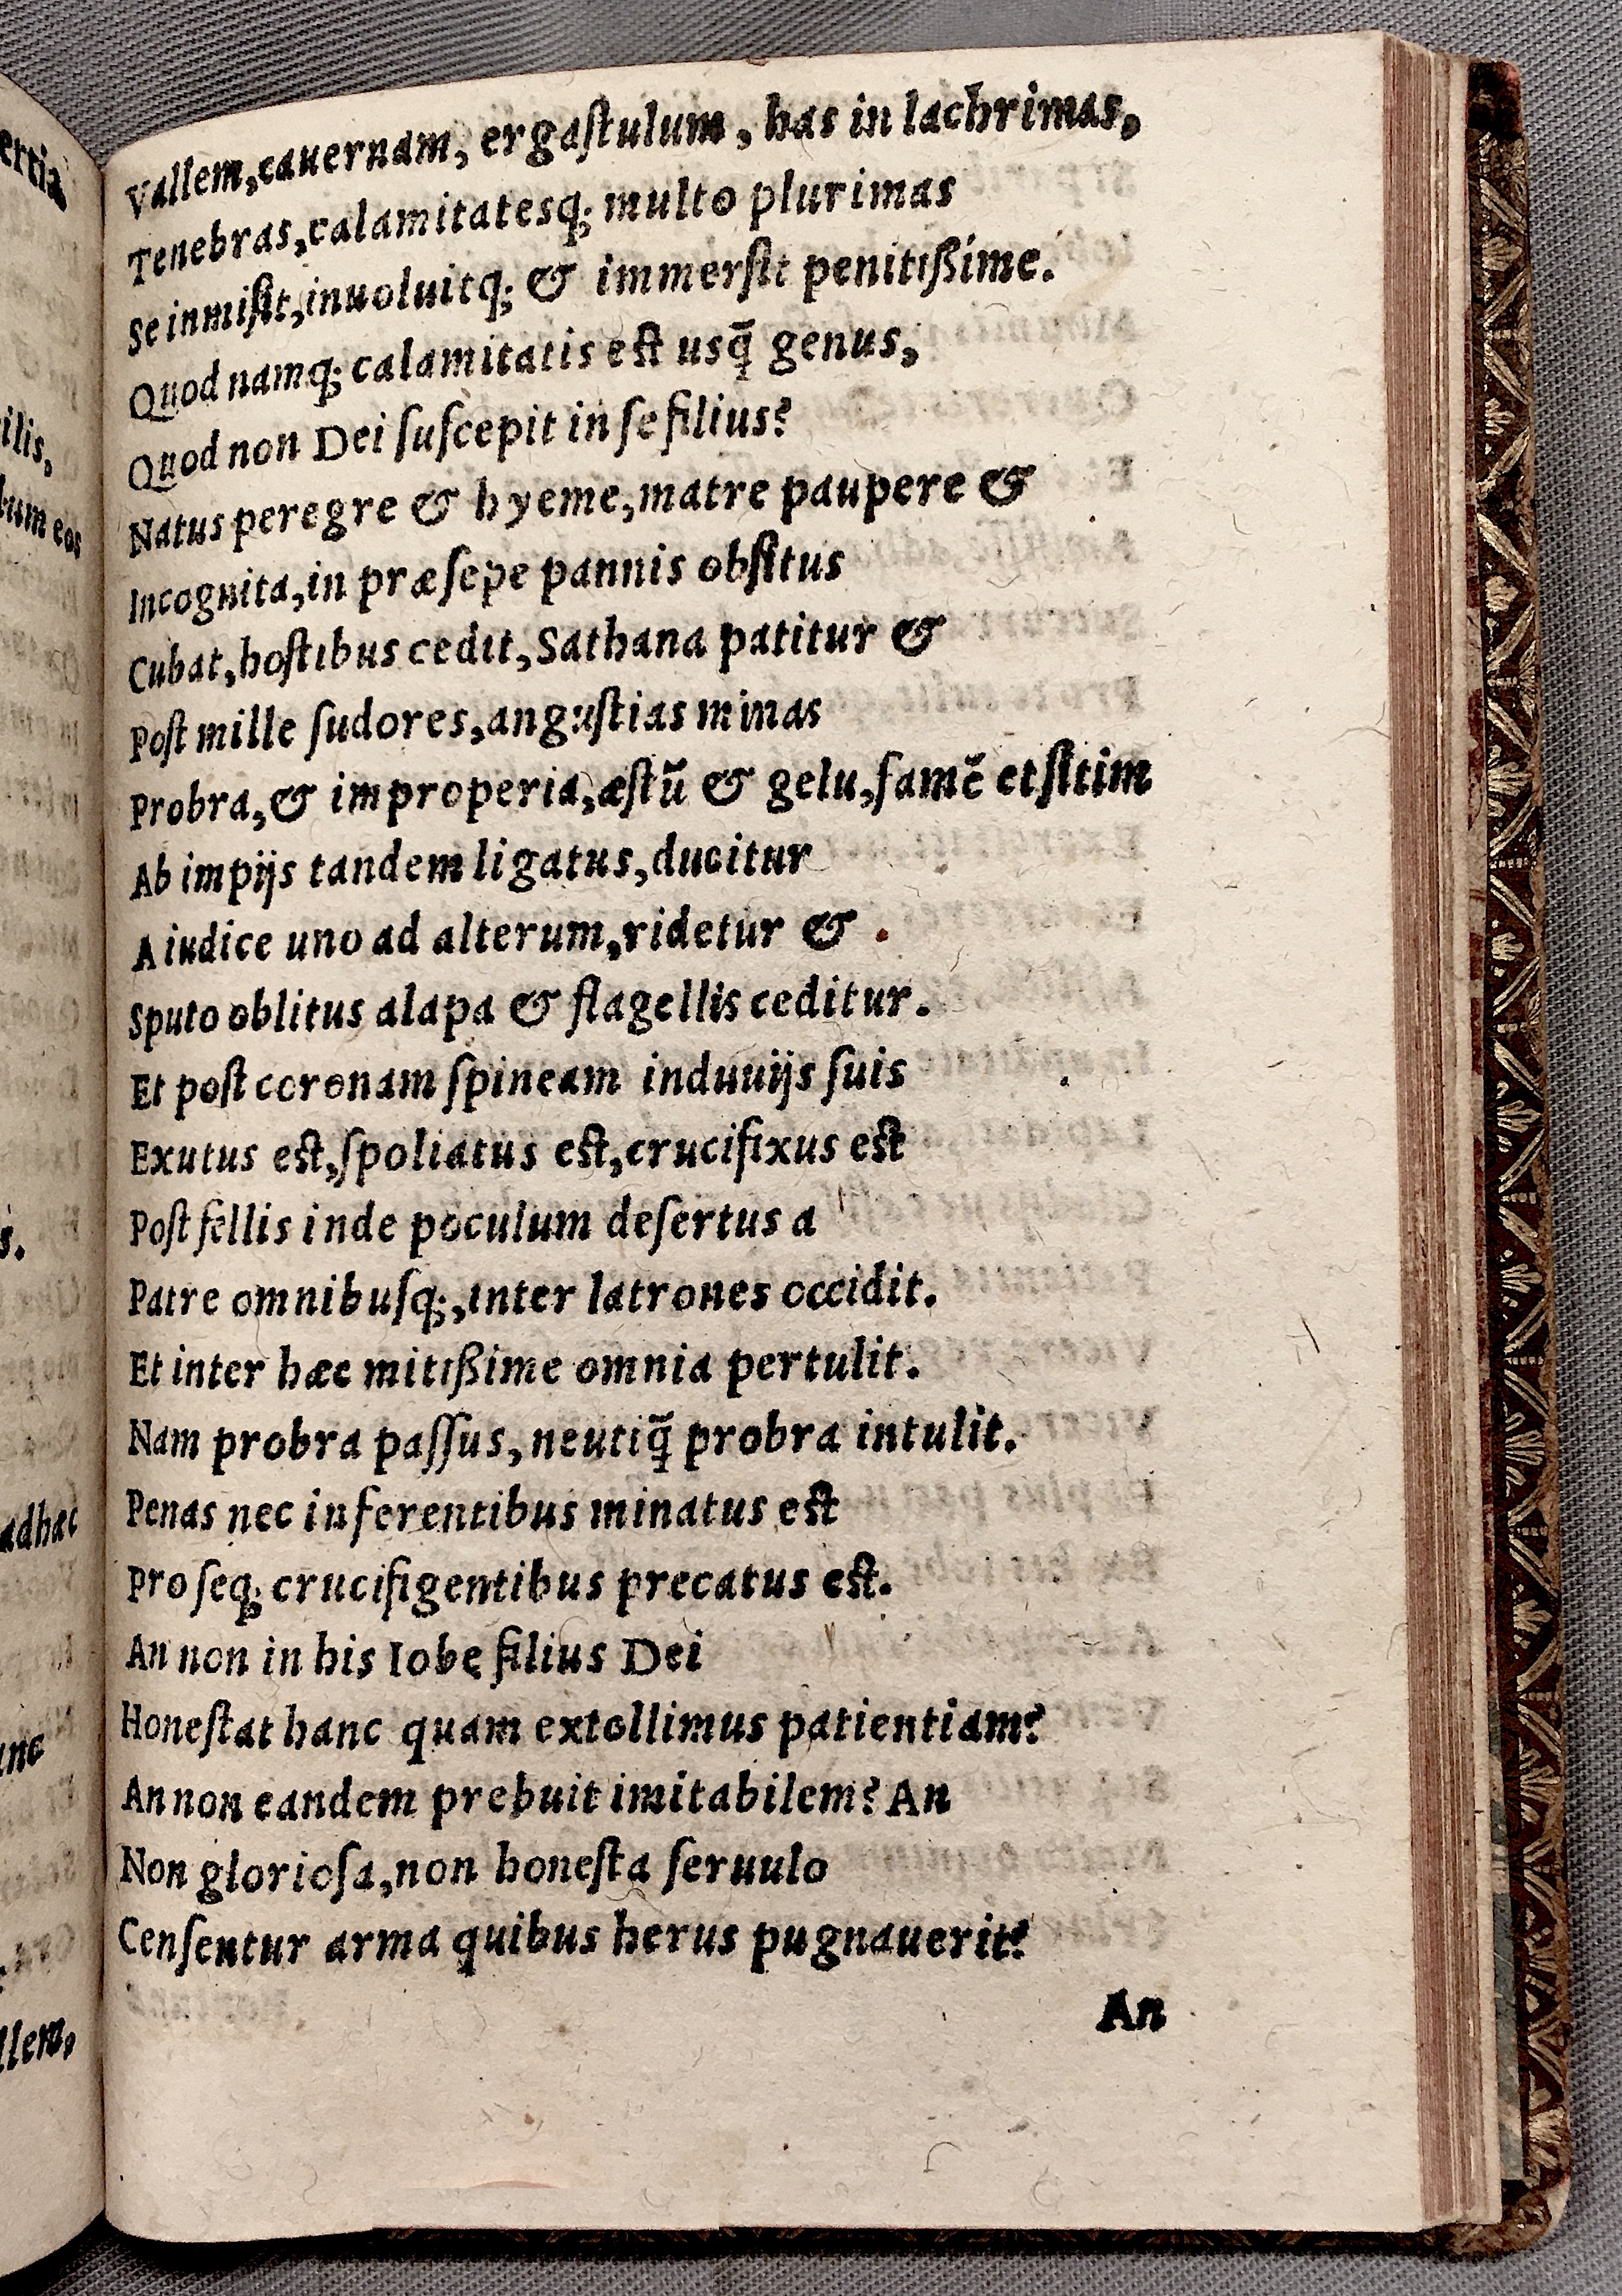 Vallem, cauernam, ergaſtulum, has in lachrimas,
Tenebras, calamitatesq; multo plurimas
Se inmiſit, inuoluitq; & immerſit penitißime.
Quod namq; calamitatis eſt usq̃ genus,
Quod non Dei ſuſcepit in ſe filius?
Natus peregre & hyeme, matre paupere &
Incognita, in præſepe pannis obſitus
Cubat, hoſtibus cedit, Sathana patitur &
Poſt mille ſudores, anguſtias minas
Probra, & improperia, æſtũ & gelu, famẽ et ſitim
Ab impijs tandem ligatus, ducitur
A iudice uno ad alterum, ridetur &
Sputo oblitus alapa & flagellis ceditur.
Et poſt coronam ſpineam induuijs ſuis
Exutus eſt, ſpoliatus eſt, crucifixus eſt
Poſt fellis inde poculum deſertus a
Patre omnibuſq;, inter latrones occidit.
Et inter hæc mitißime omnia pertulit.
Nam probra paſſus, neutiq̃ probra intulit.
Penas nec inferentibus minatus eſt
Pro ſeq; crucifigentibus precatus eſt.
An non in his Iobę filius Dei
Honeſtat hanc quam extollimus patientiam?
An non eandem prebuit imitabilem? An
Non glorioſa, non honeſta ſeruulo
Cenſentur arma quibus herus pugnauerit?
An
ertia
ilis,
eos
s.
adhæc
llem,